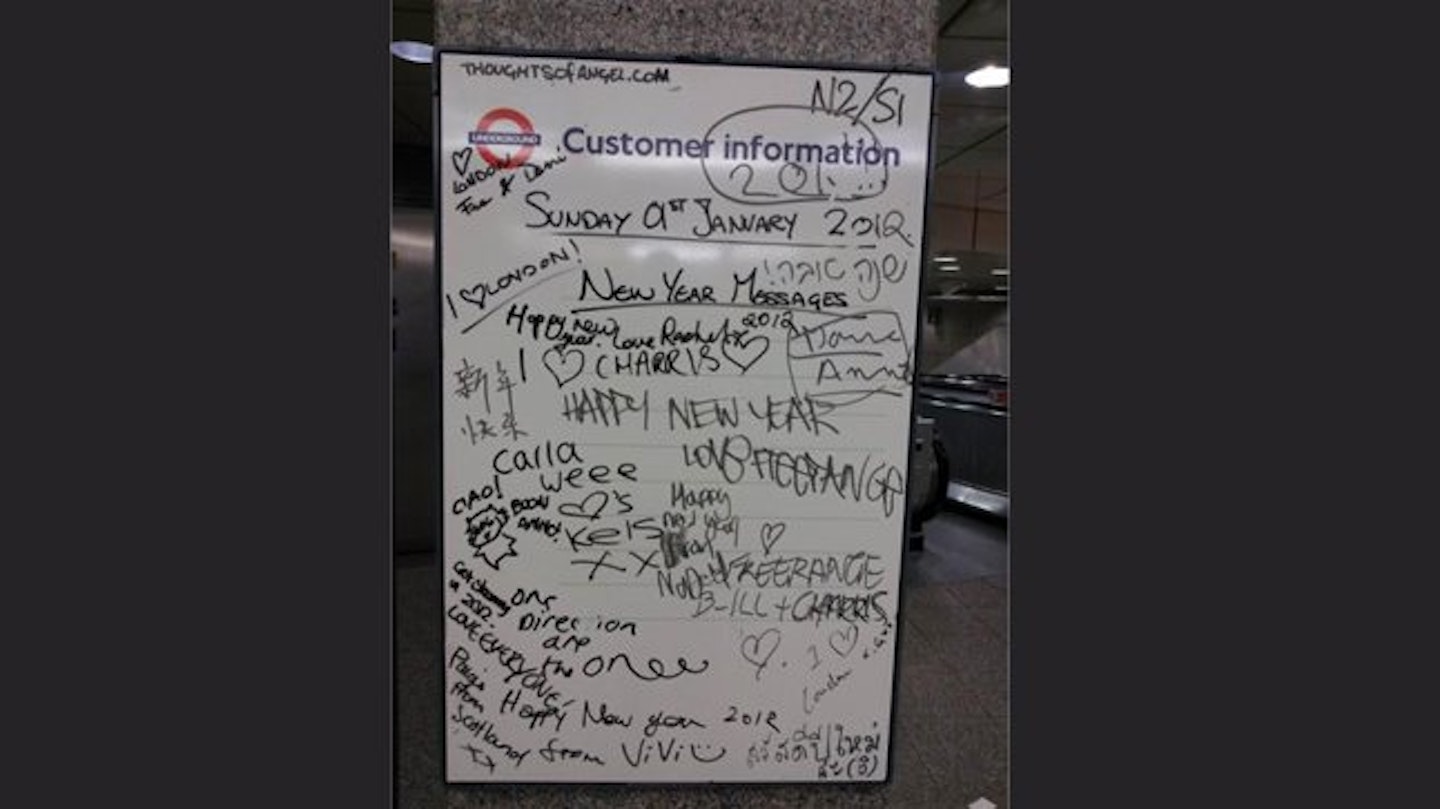 THOUGHTSofANGEL.COM
N2/S1
UNDERGROUND
Customer information
♡
LONDON
& Dani
201...
SUNDAY 01ST JANUARY 2012.
I ♡ LONDON!
שנה טובה!
NEW YEAR MESSAGES
Happy new
year. Love Rachel x
2012
I ♡ CHARRIS ♡
新年
快乐
HAPPY NEW YEAR
Carla
weee
♡'s
Kels
XX
LOVE FREERANGE
CIAO!
BUON
ANNO!
Happy
new year
♡
FREERANGE
BILL + CHARRIS
One
Direction
are
the onee
in 2012.
LOVE EVERYONE
♡. I ♡
London
Paige
from
Scotland
Happy New year 2012
from ViVi
สวัสดีปีใหม่